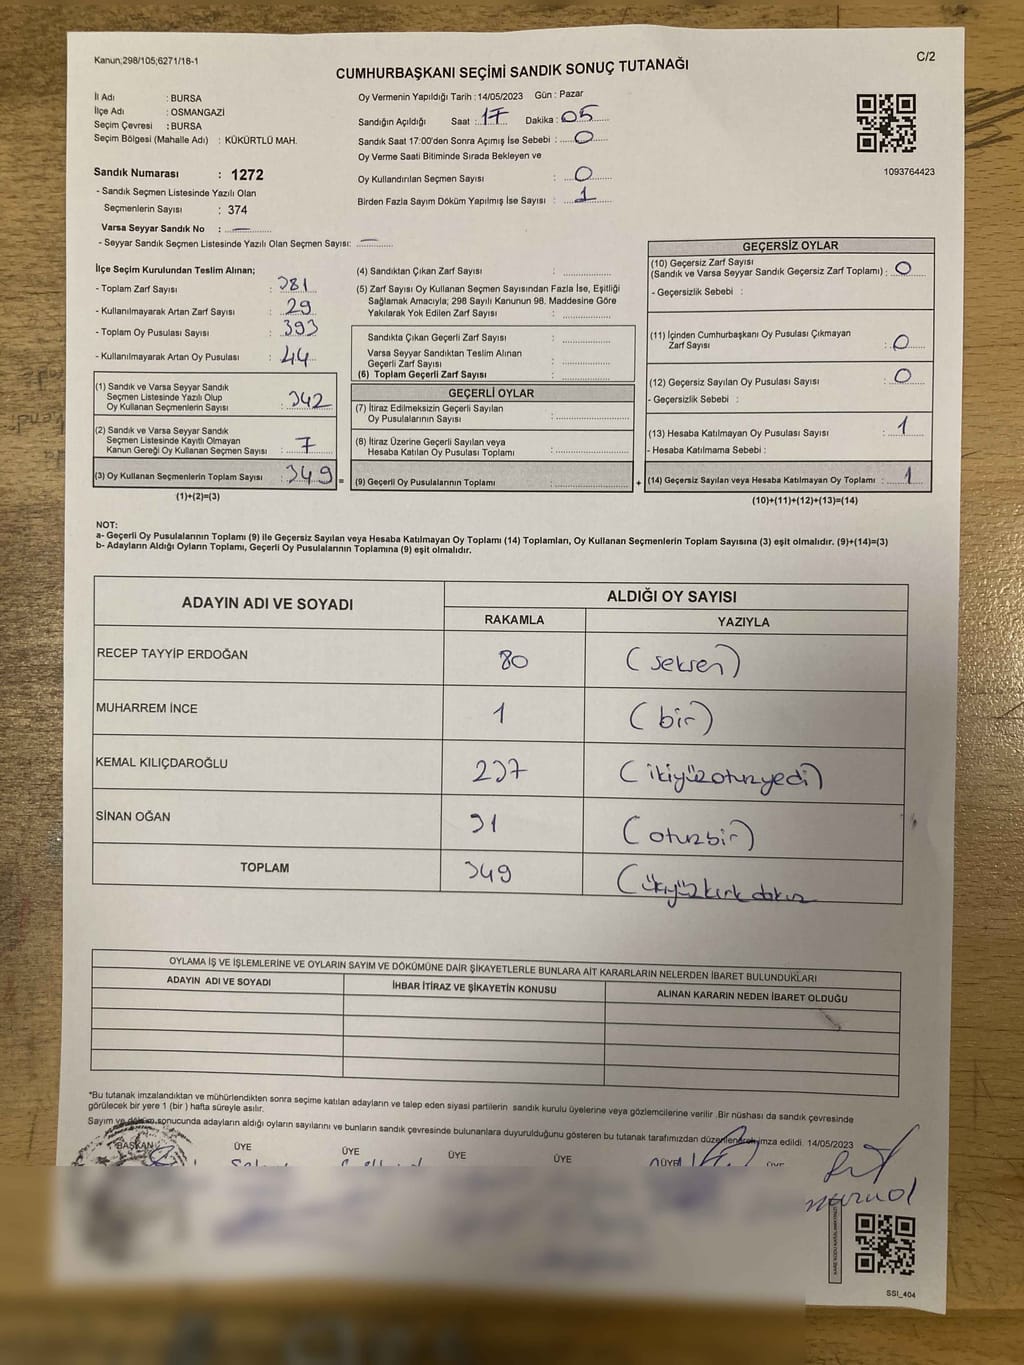 Kanun;298/105;6271/18-1
C/2
CUMHURBAŞKANI SEÇİMİ SANDIK SONUÇ TUTANAĞI
İl Adı : BURSA
İlçe Adı : OSMANGAZİ
Seçim Çevresi : BURSA
Seçim Bölgesi (Mahalle Adı) : KÜKÜRTLÜ MAH.
Sandık Numarası : 1272
- Sandık Seçmen Listesinde Yazılı Olan
Seçmenlerin Sayısı : 374
Varsa Seyyar Sandık No : —
- Seyyar Sandık Seçmen Listesinde Yazılı Olan Seçmen Sayısı: —
Oy Vermenin Yapıldığı Tarih : 14/05/2023 Gün : Pazar
Sandığın Açıldığı Saat : 17 Dakika : 05
Sandık Saat 17:00'den Sonra Açımış İse Sebebi : 0
Oy Verme Saati Bitiminde Sırada Bekleyen ve
Oy Kullandırılan Seçmen Sayısı : 0
Birden Fazla Sayım Döküm Yapılmış İse Sayısı : 1
1093764423
İlçe Seçim Kurulundan Teslim Alınan;
- Toplam Zarf Sayısı : 381
- Kullanılmayarak Artan Zarf Sayısı : 29
- Toplam Oy Pusulası Sayısı : 393
- Kullanılmayarak Artan Oy Pusulası : 44
(1) Sandık ve Varsa Seyyar Sandık
Seçmen Listesinde Yazılı Olup
Oy Kullanan Seçmenlerin Sayısı : 342
(2) Sandık ve Varsa Seyyar Sandık
Seçmen Listesinde Kayıtlı Olmayan
Kanun Gereği Oy Kullanan Seçmen Sayısı : 7
(3) Oy Kullanan Seçmenlerin Toplam Sayısı : 349 =
(1)+(2)=(3)
(4) Sandıktan Çıkan Zarf Sayısı :
(5) Zarf Sayısı Oy Kullanan Seçmen Sayısından Fazla İse, Eşitliği
Sağlamak Amacıyla; 298 Sayılı Kanunun 98. Maddesine Göre
Yakılarak Yok Edilen Zarf Sayısı :
Sandıkta Çıkan Geçerli Zarf Sayısı :
Varsa Seyyar Sandıktan Teslim Alınan
Geçerli Zarf Sayısı :
(6) Toplam Geçerli Zarf Sayısı :
GEÇERLİ OYLAR
(7) İtiraz Edilmeksizin Geçerli Sayılan
Oy Pusulalarının Sayısı :
(8) İtiraz Üzerine Geçerli Sayılan veya
Hesaba Katılan Oy Pusulası Toplamı :
(9) Geçerli Oy Pusulalarının Toplamı : +
GEÇERSİZ OYLAR
(10) Geçersiz Zarf Sayısı
(Sandık ve Varsa Seyyar Sandık Geçersiz Zarf Toplamı) : 0
- Geçersizlik Sebebi :
(11) İçinden Cumhurbaşkanı Oy Pusulası Çıkmayan
Zarf Sayısı : 0
(12) Geçersiz Sayılan Oy Pusulası Sayısı : 0
- Geçersizlik Sebebi :
(13) Hesaba Katılmayan Oy Pusulası Sayısı : 1
- Hesaba Katılmama Sebebi :
(14) Geçersiz Sayılan veya Hesaba Katılmayan Oy Toplamı : 1
(10)+(11)+(12)+(13)=(14)
NOT:
a- Geçerli Oy Pusulalarının Toplamı (9) ile Geçersiz Sayılan veya Hesaba Katılmayan Oy Toplamı (14) Toplamları, Oy Kullanan Seçmenlerin Toplam Sayısına (3) eşit olmalıdır. (9)+(14)=(3)
b- Adayların Aldığı Oyların Toplamı, Geçerli Oy Pusulalarının Toplamına (9) eşit olmalıdır.
ADAYIN ADI VE SOYADI ALDIĞI OY SAYISI
RAKAMLA YAZIYLA
RECEP TAYYİP ERDOĞAN 80 (seksen)
MUHARREM İNCE 1 (bir)
KEMAL KILIÇDAROĞLU 237 (ikiyüzotuzyedi)
SİNAN OĞAN 31 (otuzbir)
TOPLAM 349
OYLAMA İŞ VE İŞLEMLERİNE VE OYLARIN SAYIM VE DÖKÜMÜNE DAİR ŞİKAYETLERLE BUNLARA AİT KARARLARIN NELERDEN İBARET BULUNDUKLARI
ADAYIN ADI VE SOYADI İHBAR İTİRAZ VE ŞİKAYETİN KONUSU ALINAN KARARIN NEDEN İBARET OLDUĞU
*Bu tutanak imzalandıktan ve mühürlendikten sonra seçime katılan adayların ve talep eden siyasi partilerin sandık kurulu üyelerine veya gözlemcilerine verilir .Bir nüshası da sandık çevresinde
görülecek bir yere 1 (bir ) hafta süreyle asılır.
Sayım ve döküm sonucunda adayların aldığı oyların sayılarını ve bunların sandık çevresinde bulunanlara duyurulduğunu gösteren bu tutanak tarafımızdan düzenlenerek imza edildi. 14/05/2023
BAŞKAN ÜYE ÜYE ÜYE ÜYE ÜYE
SSI_404